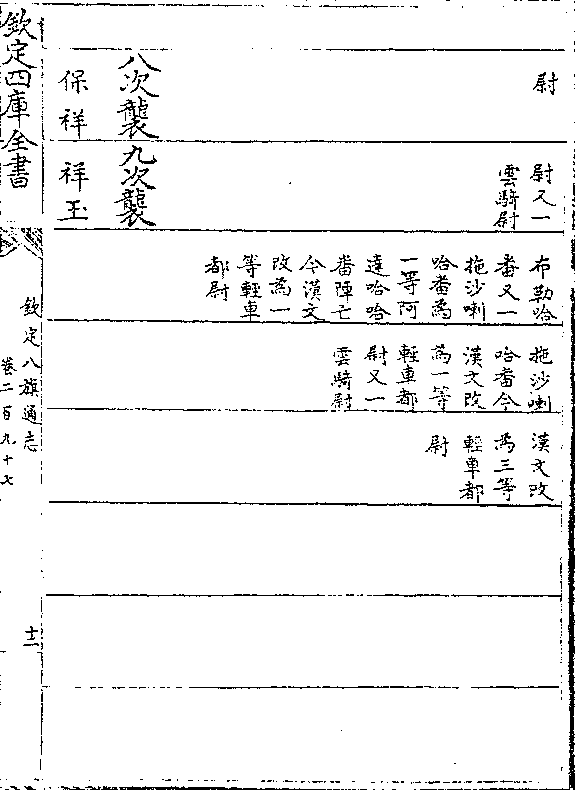 尉
八次襲
保祥
尉又一
雲騎尉
九次襲
祥玉
布勒哈
番又一
拖沙喇
哈番為
一等阿
達哈哈
番陣亡
今漢文
改為一
等輕車
都尉
拖沙喇
哈番今
漢文改
為一等
輕車都
尉又一
雲騎尉
漢文改
為三等
輕車都
尉
欽定四庫全書
欽定八旗通志
卷二百九十七
十二